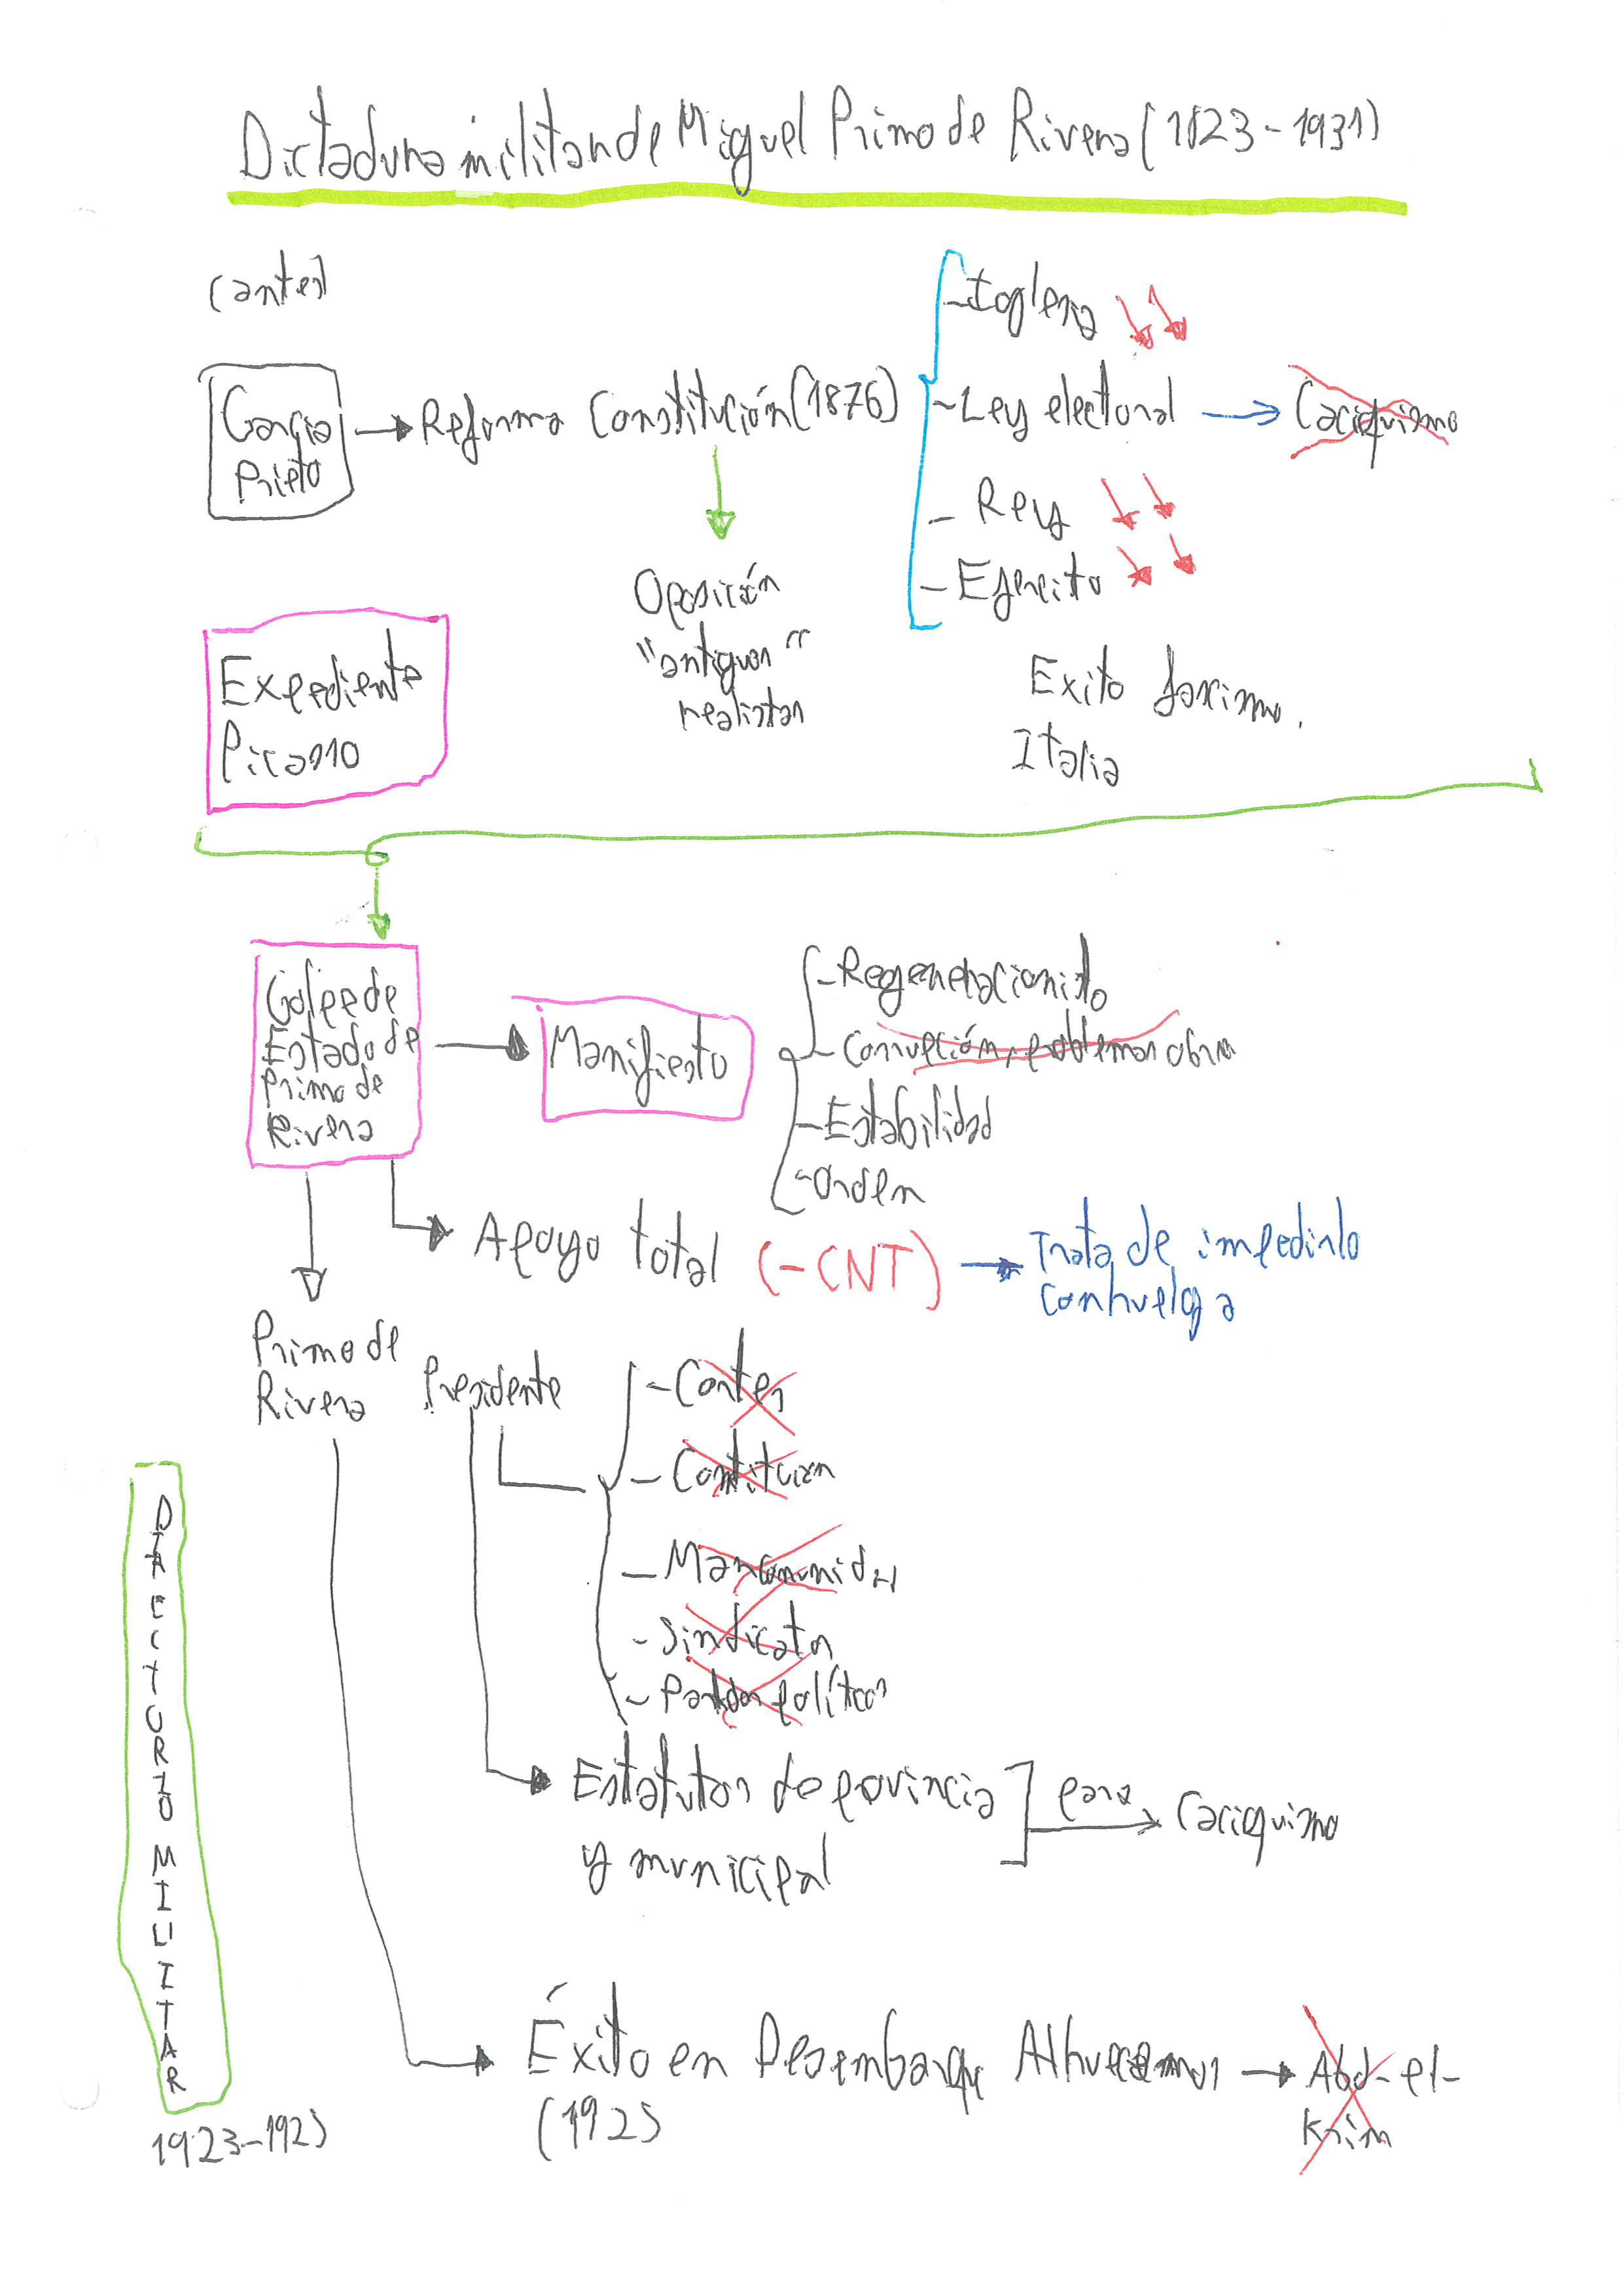 Dictadura militar de Miguel Primo de Rivera (1923-1931)
(antes)
García
Prieto
Reforma Constitución (1876)
-Iglesia
-Ley electoral
Caciquismo
- Rey
- Ejercito
Oposición
"antiguos"
realistas
Expediente
Picasso
Exito fascismo.
Italia
Golpe de
Estado de
Primo de
Rivera
Manifiesto
-Regeneracionisto
- Corrupción, problemas obra
-Estabilidad
-Orden
Apoyo total (-CNT)
Trata de impedirlo
con huelga
Primo de
Rivera
Presidente
-Cortes
- Constitucion
- Mancomunidad
- Sindicatos
- Partidos políticos
Estatutos de provincia
y municipal
para
Caciquismo
DIRECTORIO MILITAR
1923-1925
Éxito en Desembarque Alhucemas
(1925
Abd-el-
Krim